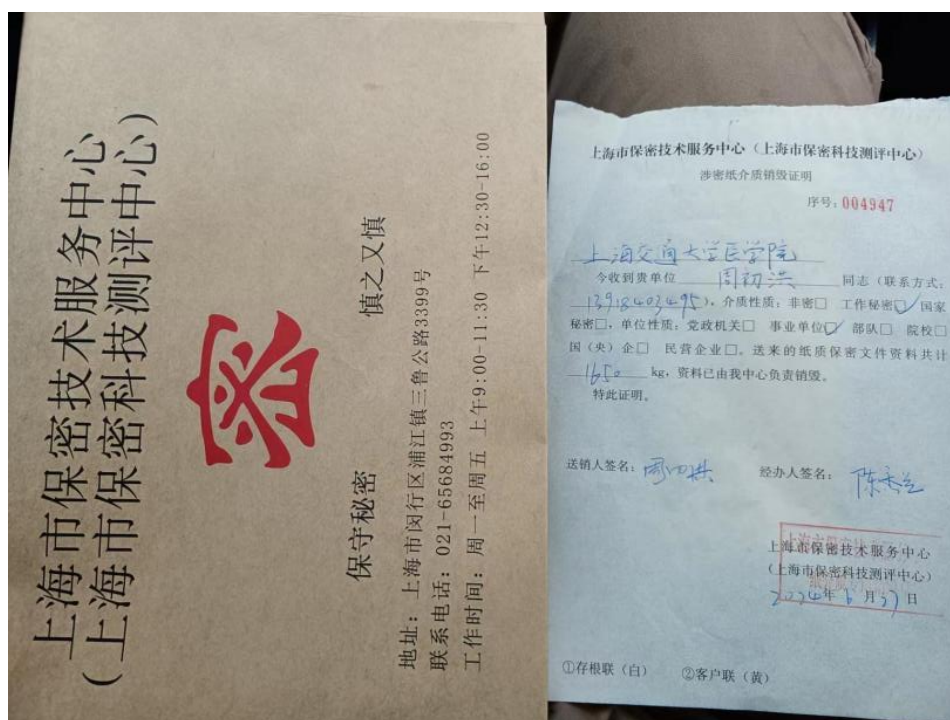 上海市保密技术服务中心
(上海市保密科技测评中心)
密
保守秘密 慎之又慎
地址：上海市闵行区浦江镇三鲁公路3399号
联系电话：021-65684993
工作时间：周一至周五 上午9:00-11:30 下午12:30-16:00
上海市保密技术服务中心（上海市保密科技测评中心）
涉密纸介质销毁证明
序号：004947
上海交通大学医学院
今收到贵单位 周初洪 同志（联系方式：
13918403495），介质性质：非密□ 工作秘密☑ 国家
秘密□，单位性质：党政机关□ 事业单位☑ 部队□ 院校□
国（央）企□ 民营企业□。送来的纸质保密文件资料共计
1650 kg，资料已由我中心负责销毁。
特此证明。
送销人签名： 经办人签名：
上海市保密技术服务中心
（上海市保密科技测评中心）
2024年6月27日
①存根联（白） ②客户联（黄）